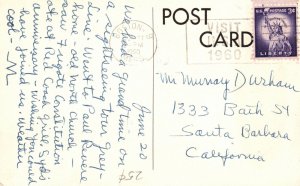 POST
CARD
VISIT
1960
U.S. POSTAGE 3¢
LIBERTY
June 20
We had a grand time on
a sightseeing tour Grey-
line. Went to Paul Revere
home - old North Church -
saw Frigate Constitution
ate at Red Coach Grill, Syd's
anniversary - Wishing you
have found us - weather
cool - M
25¢
Mr Murray Durham
1333 Bath St
Santa Barbara
California